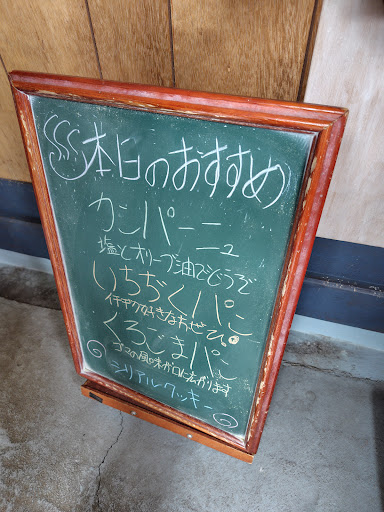 本日のおすすめ
カンパーニュ
塩とオリーブ油でどうぞ
いちぢくパン
イチヂク好きな方ぜひ。
くろごまパン
ゴマの風味が口に広がります
シリアルクッキー